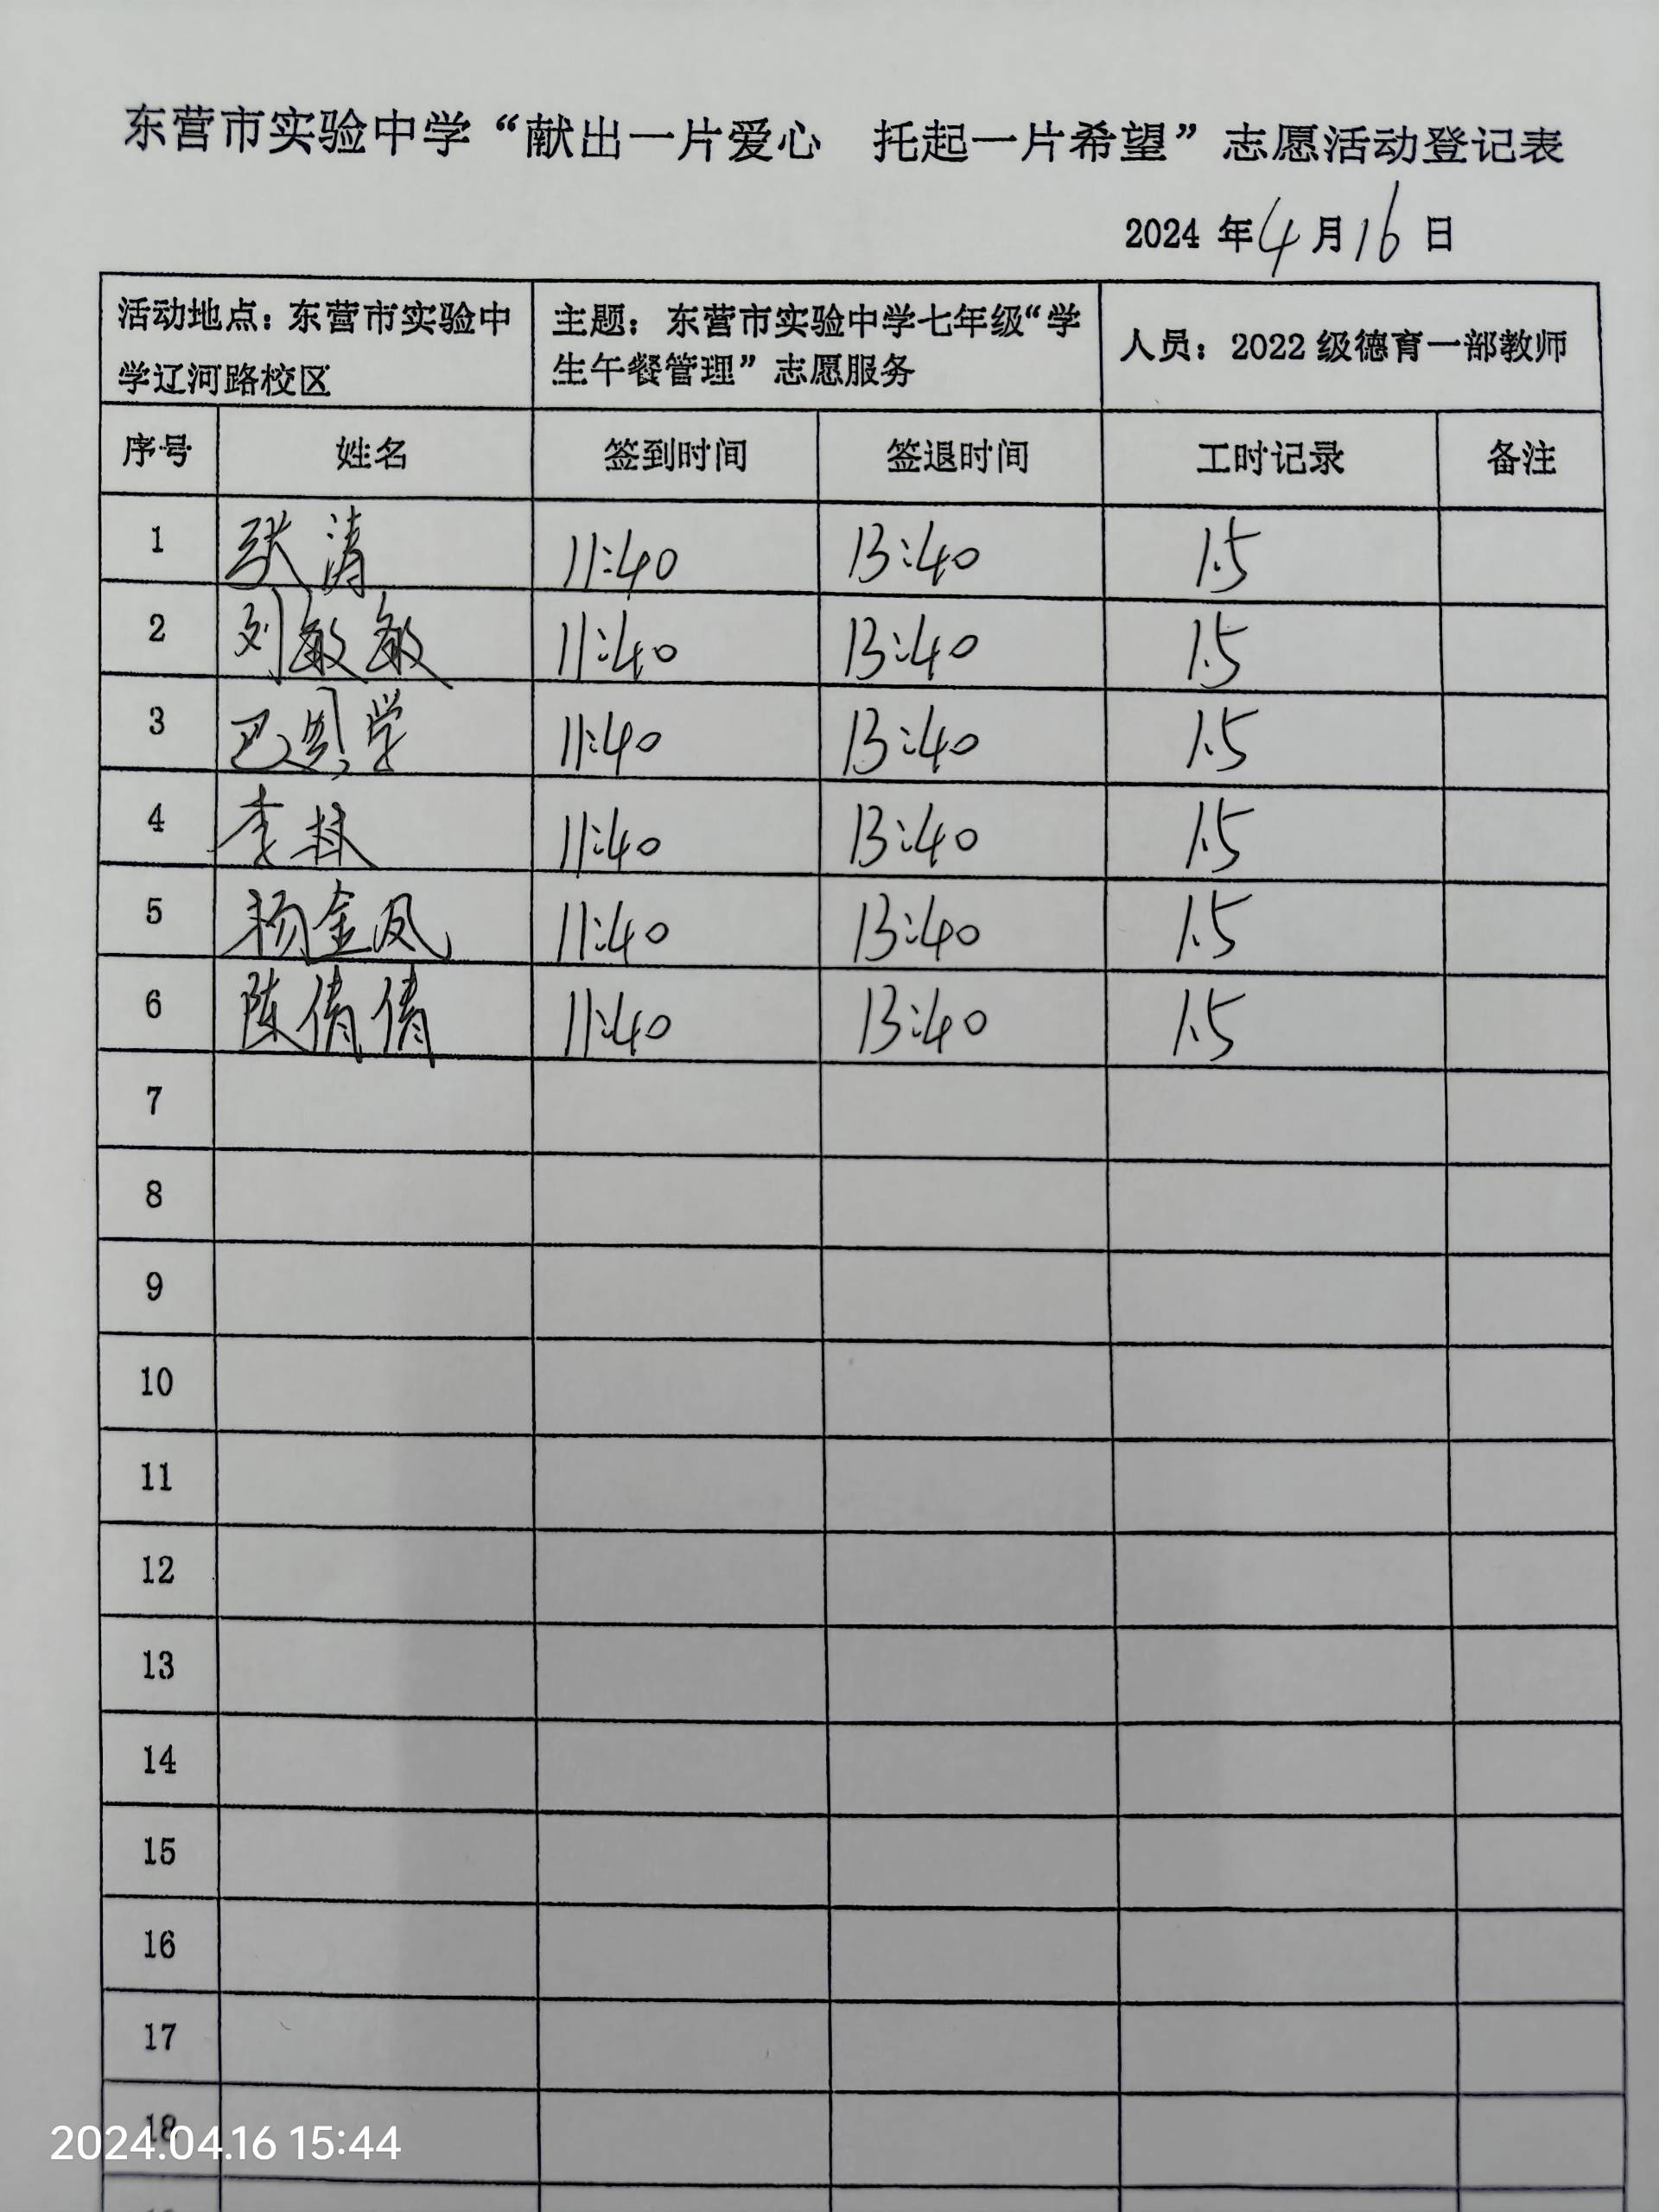 东营市实验中学“献出一片爱心　托起一片希望”志愿活动登记表
2024 年 4 月 16 日
活动地点：东营市实验中学辽河路校区 主题：东营市实验中学七年级“学生午餐管理”志愿服务 人员：2022 级德育一部教师
序号 姓名 签到时间 签退时间 工时记录 备注
1 张涛 11:40 13:40 1.5
2 刘敏敏 11:40 13:40 1.5
3 巴 学 11:40 13:40 1.5
4 李林 11:40 13:40 1.5
5 杨金凤 11:40 13:40 1.5
6 陈倩倩 11:40 13:40 1.5
7
8
9
10
11
12
13
14
15
16
17
18
2024.04.16 15:44